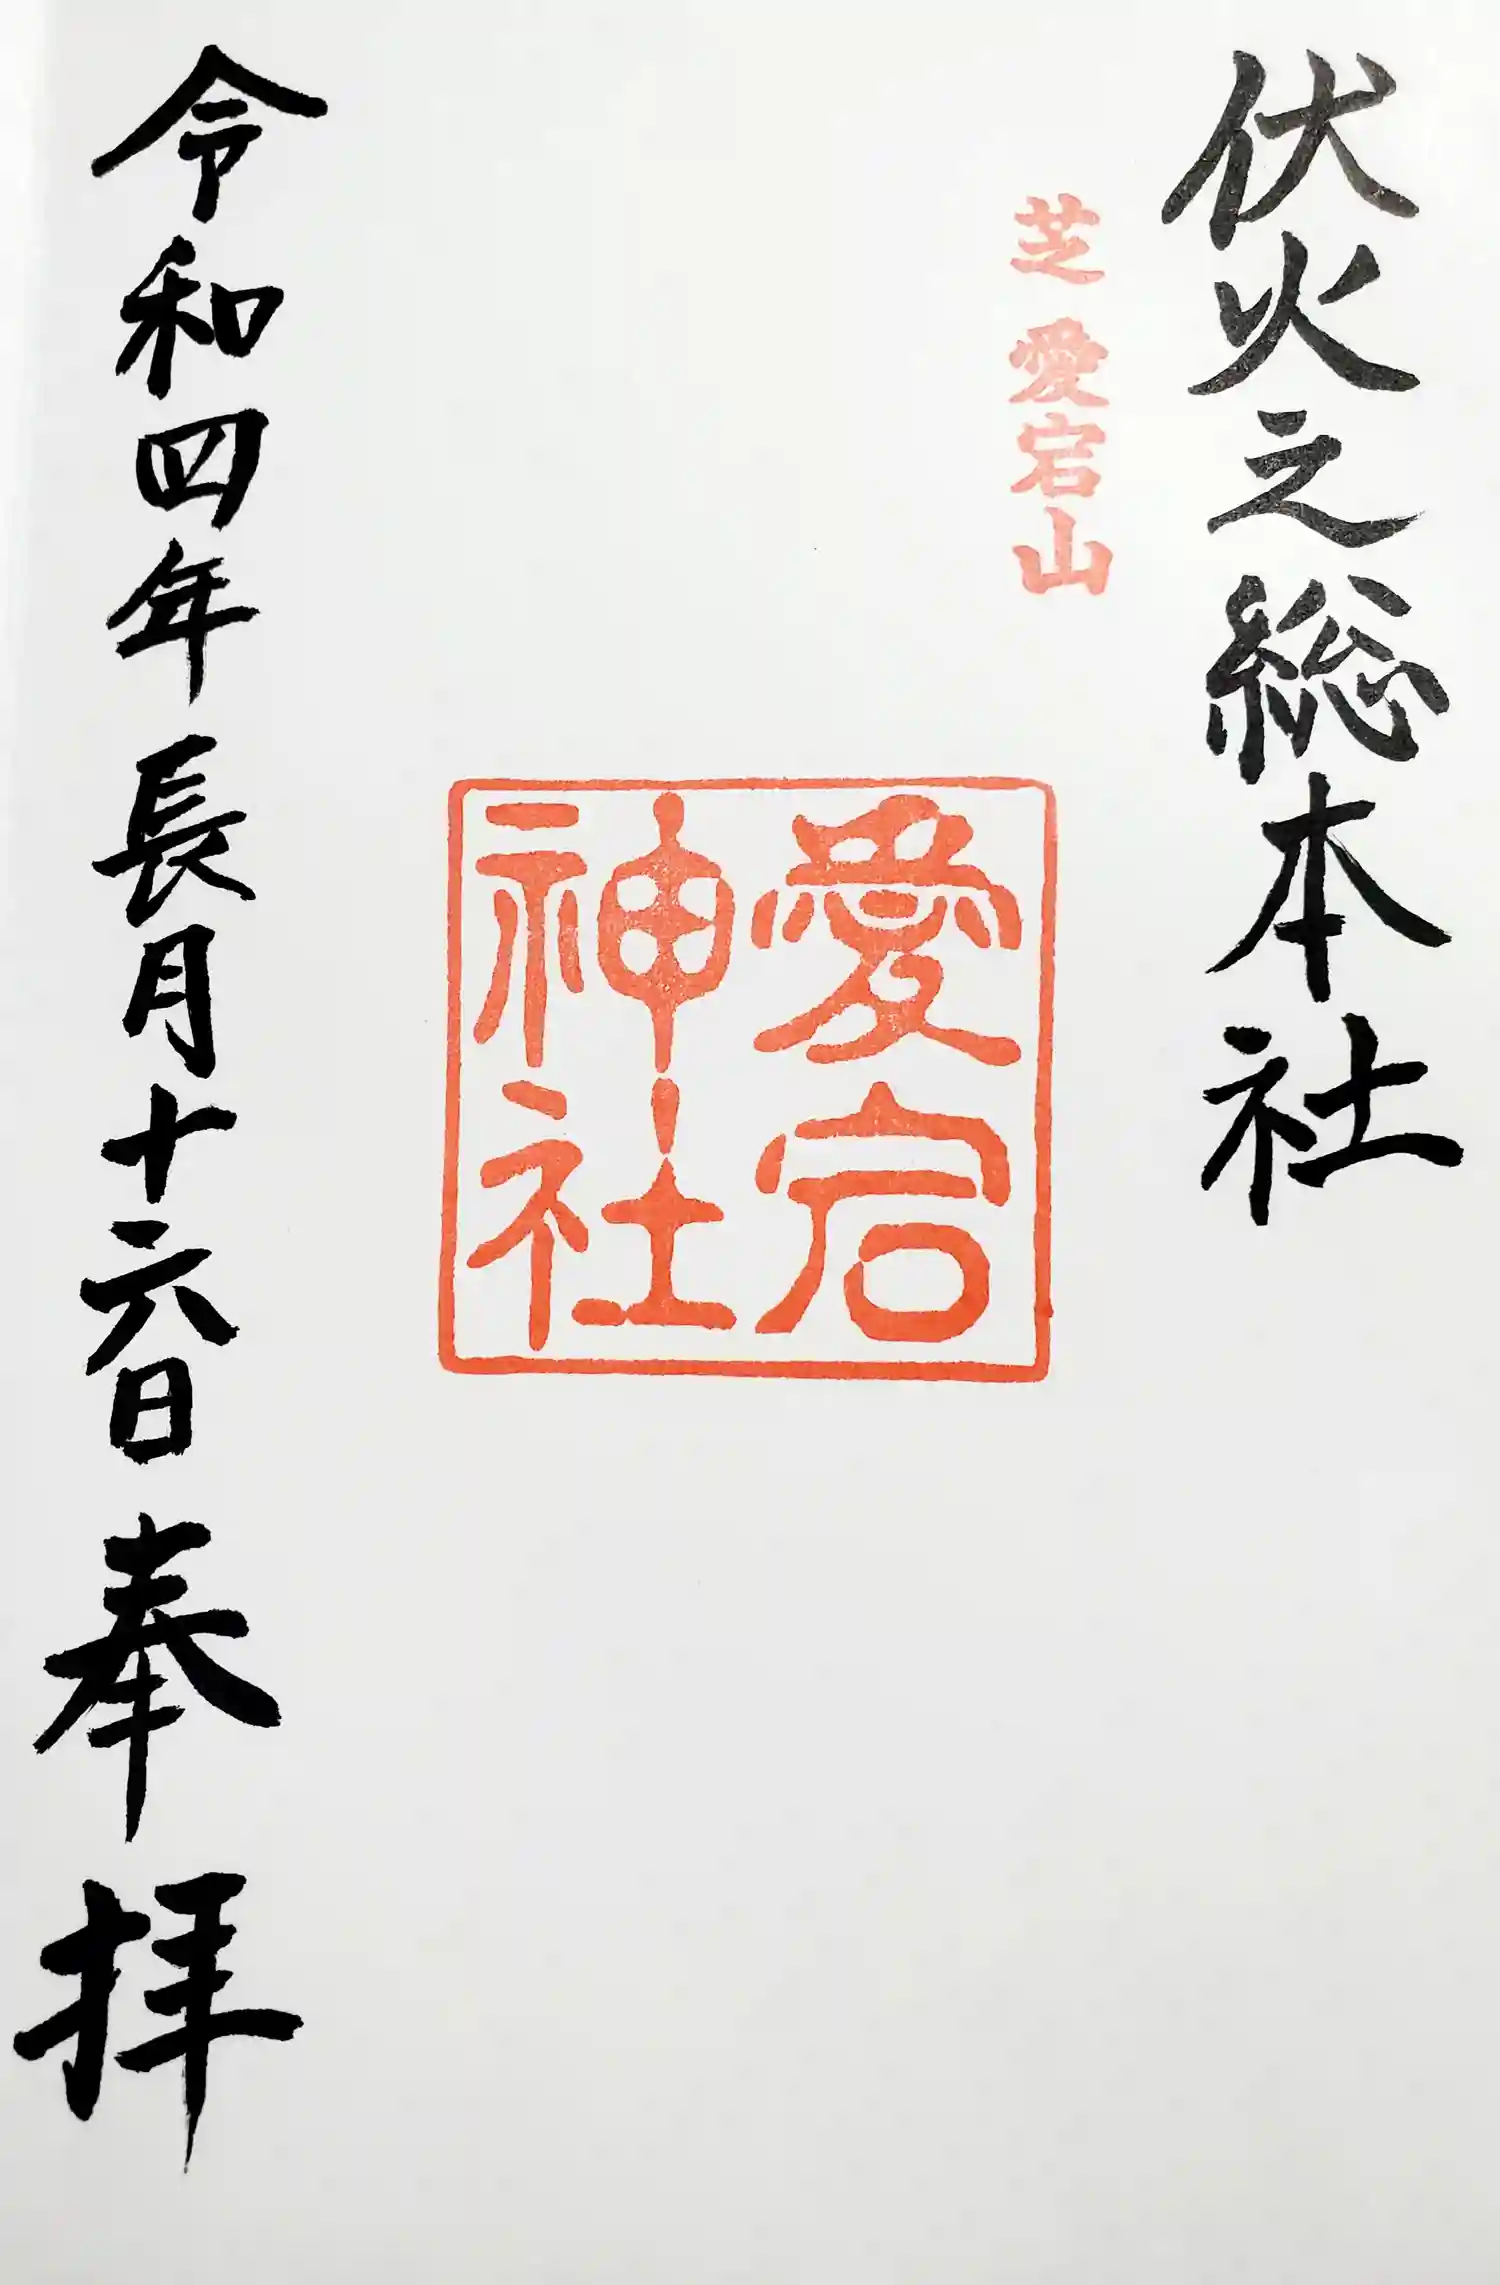 伏火之総本社
芝 愛宕山
愛宕
神社
令和四年長月十六日奉拝